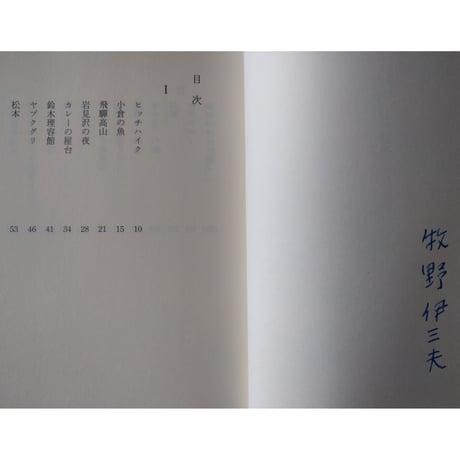 牧野伊三夫
目次
I
ヒッチハイク 10
小倉の魚 15
飛驒高山 21
岩見沢の夜 28
カレーの屋台 34
鈴木理容館 41
ヤブクグリ 46
松本 53